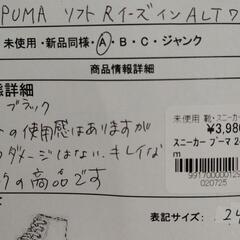 PUMA ソフトRイーズインALTワ
未使用・新品同様・A・B・C・ジャンク
商品情報詳細
態詳細
ブラック
の使用感はありますが
ダメージはない、キレイな
の商品です
表記サイズ: 24
未使用 靴・スニーカー
¥3,980
スニーカー プーマ 2
m
991700000129
020725